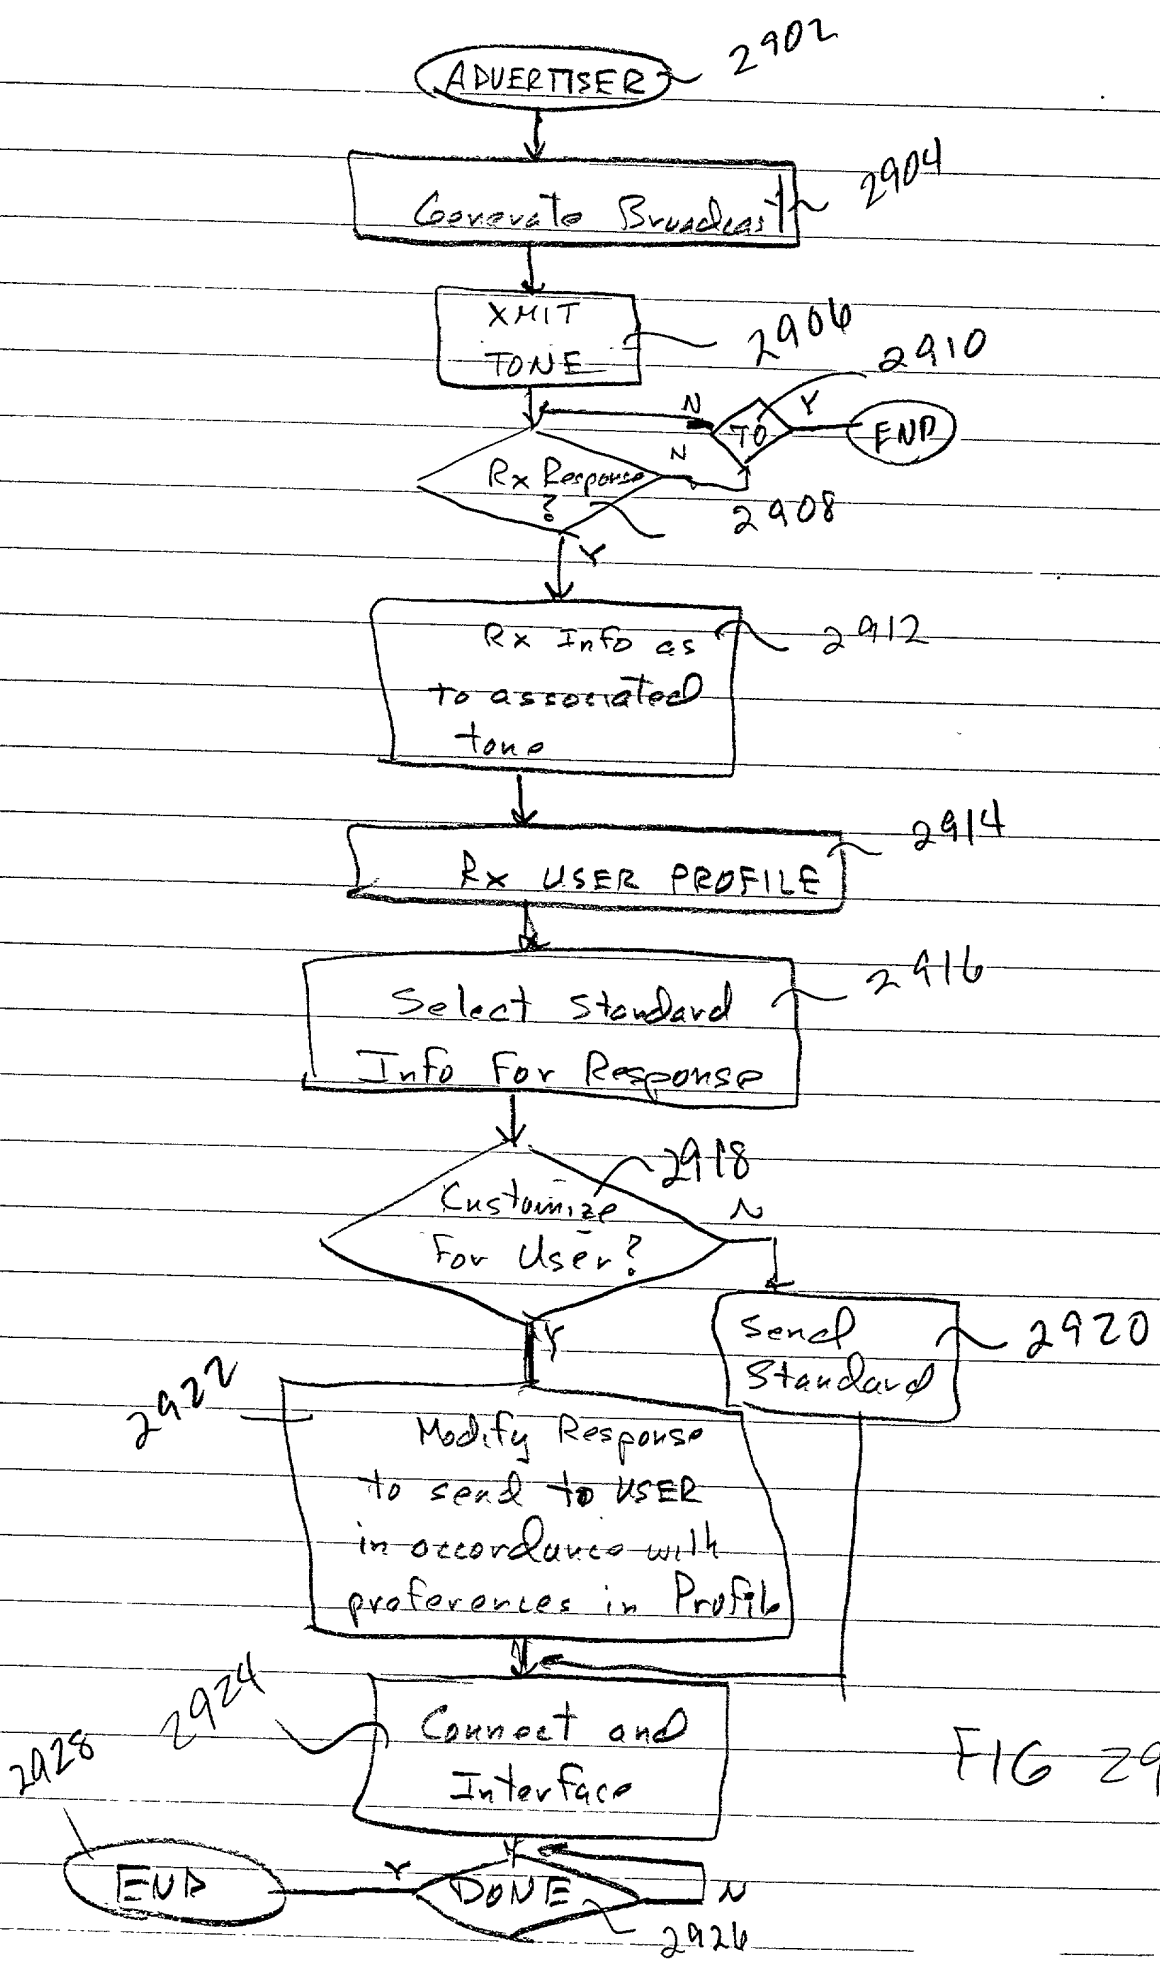 ADVERTISER 2902
Generate Broadcast 2904
XMIT
TONE
2906
2910
N
TO
Y
END
Rx Response
?
N
2908
Y
Rx Info as
to associated
tone
2912
Rx USER PROFILE
2914
Select Standard
Info For Response
2916
2918
Customize
For User?
N
Y
Send
Standard
2920
2922
Modify Response
to send to USER
in accordance with
preferences in Profile
2924
Connect and
Interface
FIG 29
2928
END
Y
DONE
N
2926